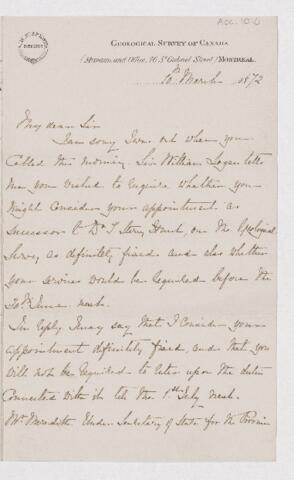 ACC. 10-6
GEOLOGICAL SURVEY OF CANADA
(Museum and Office, 76 St Gabriel Street) MONTREAL.
10th March 1872
My dear Sir
I am sorry I was out when you
called this morning. Sir William Logan tells
me you wished to enquire whether you
might consider your appointment as
Successor to Dr T. Sterry Hunt, on the Geological
Survey, as definitely fixed and also whether
your services would be required before the
30th June next.
In reply I may say that I consider your
appointment definitely fixed, and that you
will not be required to enter upon the duties
connected with it till the 1st July next.
Mr Meredith Under Secretary of State for the Provinces